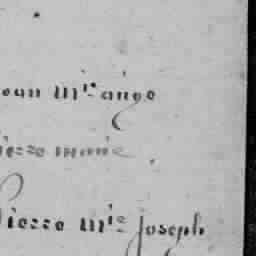 jean M.re ange
pierre marie
Pierre M.ie joseph